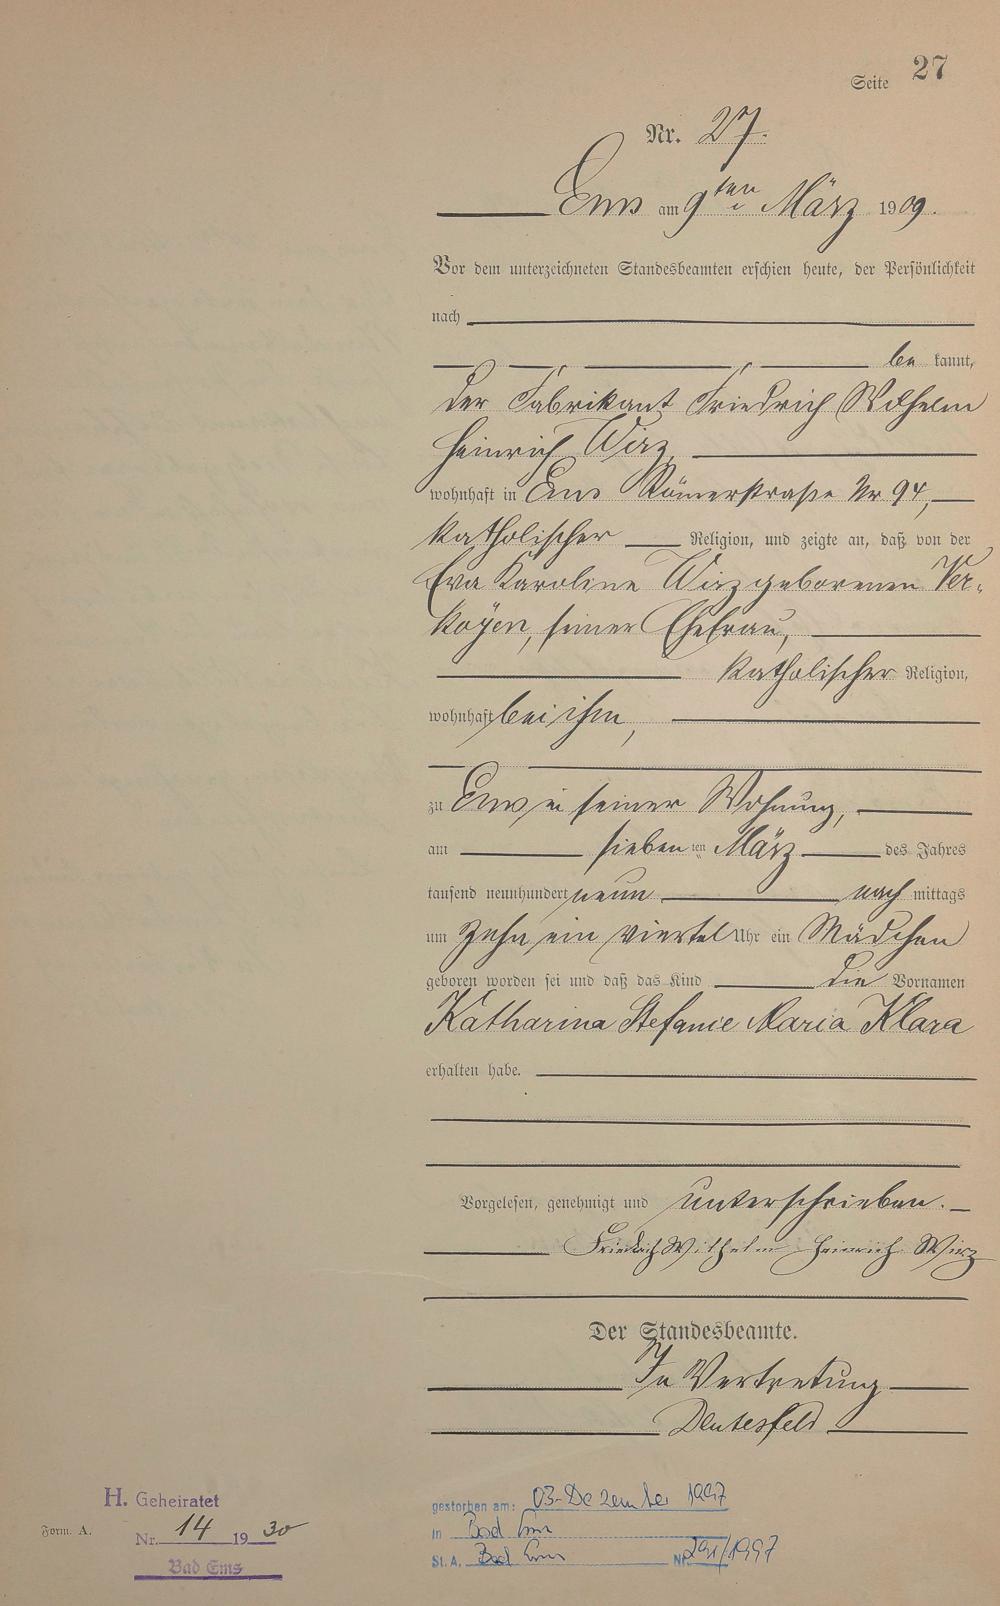 Seite 27
Nr. 27.
Ems am 9ten März 1909.
Vor dem unterzeichneten Standesbeamten erschien heute, der Persönlichkeit
nach
be kannt,
der Fabrikant Friedrich Wilhelm
Heinrich Wirz,
wohnhaft in Ems Römerstraße Nr 94,
katholischer Religion, und zeigte an, daß von der
Eva Karoline Wirz geborenen Ver-
koyen, seiner Ehefrau,
katholischer Religion,
wohnhaft bei ihm,
zu Ems in seiner Wohnung,
am sieben ten März des Jahres
tausend neunhundert neun nach mittags
um zehn ein viertel Uhr ein Mädchen
geboren worden sei und daß das Kind die Vornamen
Katharina Stefanie Maria Klara
erhalten habe.
Vorgelesen, genehmigt und unterschrieben.
Friedrich Wilhelm Heinrich Wirz
Der Standesbeamte.
In Vertretung
H. Geheiratet
Form. A.
Nr. 14 1930
Bad Ems
gestorben am: 03. Dezember 1997
in Bad Ems
St. A. Bad Ems Nr. 291/1997